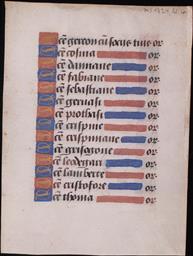 cē gereon cū socus tuis or
cē cosma or
cē damiane or
cē fabiane or
cē sebastiane or
cē geruasi or
cē prothasi or
cē crispine or
cē crispiniane or
cē grisogone or
cē leodegari or
cē lamberte or
cē cristofore or
cē thoma or